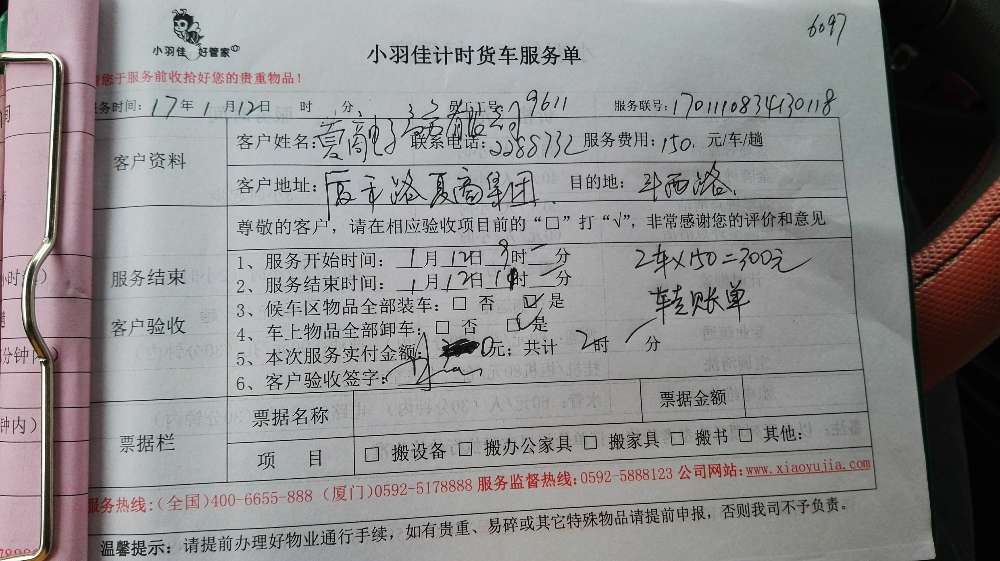 6097
小羽佳 好管家
小羽佳计时货车服务单
您于服务前收拾好您的贵重物品！
服务时间：17年1月12日 时 分 9611 服务联号：1701110834130118
客户资料
客户姓名：夏商电子 联系电话：2288732 服务费用：150 元/车/趟
客户地址：厦禾路夏商集团 目的地：斗西路
尊敬的客户，请在相应验收项目前的“□”打“√”，非常感谢您的评价和意见
服务结束
客户验收
1、服务开始时间：1月12日9时 分
2、服务结束时间：1月12日11时 分
3、候车区物品全部装车：□ 否 ☑ 是
4、车上物品全部卸车：□ 否 ☑ 是
5、本次服务实付金额： 0元；共计 2时 分
6、客户验收签字：
2车×150=300元
转账单
票据栏
票据名称 票据金额
项 目 □ 搬设备 □ 搬办公家具 □ 搬家具 □ 搬书 □ 其他：
服务热线：(全国)400-6655-888 (厦门)0592-5178888 服务监督热线：0592-5888123 公司网站：www.xiaoyujia.com
温馨提示：请提前办理好物业通行手续，如有贵重、易碎或其它特殊物品请提前申报，否则我司不予负责。